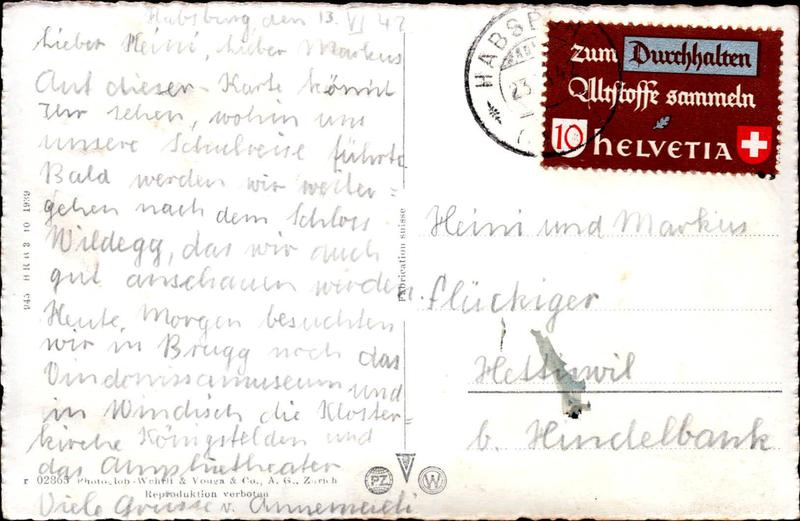 Habsburg, den 13. VI 42
Lieber Heini, lieber Markus
Auf dieser Karte könnt
Ihr sehen, wohin uns
unsere Schulreise führte
Bald werden wir weiter-
gehen nach dem Schloss
Wildegg, das wir auch
gut anschauen werden.
Heute Morgen besuchten
wir in Brugg noch das
Vindonissamuseum und
in Windisch die Kloster-
kirche Königsfelden und
das Amphitheater
Viele Grüsse v. Annemarieli
r 02865 Photo. Job-Wehrli & Vouga & Co., A. G., Zürich
Reproduktion verboten
945 HRB 3 10 1939
Fabrication suisse
PZ
W
HABSB
23
zum Durchhalten
Altstoffe sammeln
10 HELVETIA
Heini und Markus
Flückiger
Hettiswil
b. Hindelbank